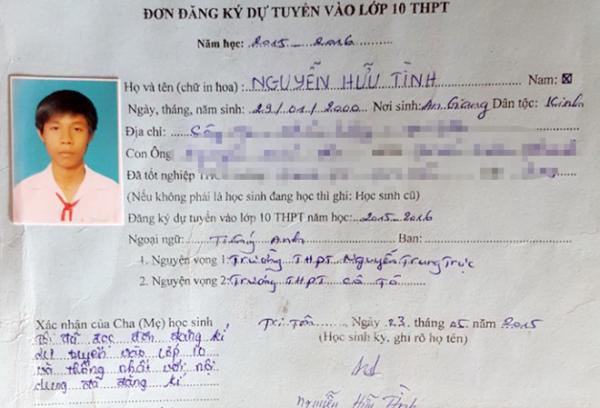 ĐƠN ĐĂNG KÝ DỰ TUYỂN VÀO LỚP 10 THPT
Năm học: 2015 - 2016
Họ và tên (chữ in hoa) NGUYỄN HỮU TÌNH Nam: ☒
Ngày, tháng, năm sinh: 29/01/2000 Nơi sinh: An Giang Dân tộc: Kinh
Địa chỉ:
Con Ông
Đã tốt nghiệp
(Nếu không phải là học sinh đang học thì ghi: Học sinh cũ)
Đăng ký dự tuyển vào lớp 10 THPT năm học: 2015-2016
Ngoại ngữ: Tiếng Anh Ban:
1. Nguyện vọng 1: Trường THPT Nguyễn Trung Trực
2. Nguyện vọng 2: Trường THPT Cô Tô
Xác nhận của Cha (Mẹ) học sinh
Tôi đã đọc đơn đăng kí
dự tuyển vào lớp 10
và thống nhất với nội
dung đã đăng kí
Tri Tôn, Ngày 23. tháng 05. năm 2015
(Học sinh ký, ghi rõ họ tên)
Nguyễn Hữu Tình